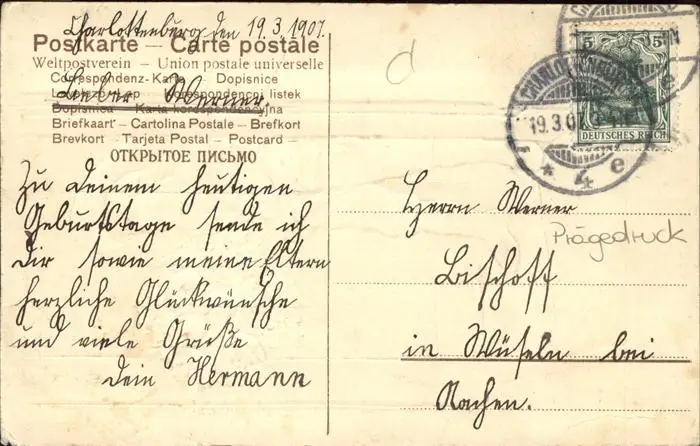 Charlottenburg den 19.3.1907.
Postkarte — Carte postale
Weltpostverein — Union postale universelle
Correspondenz-Karte Dopisnice
Lieber Werner,
Dopisnica Karta korespondencyjna
Briefkaart — Cartolina Postale — Brefkort
Brevkort — Tarjeta Postal — Postcard
ОТКРЫТОЕ ПИСЬМО
Zu Deinem heutigen
Geburtstage sende ich
Dir sowie meine Eltern
herzliche Glückwünsche
und viele Grüße
Dein Hermann
d
5 5
DEUTSCHES REICH
19.3.07
* 4 e
Herrn Werner
Prägedruck
Bischoff
in Würseln bei
Aachen.